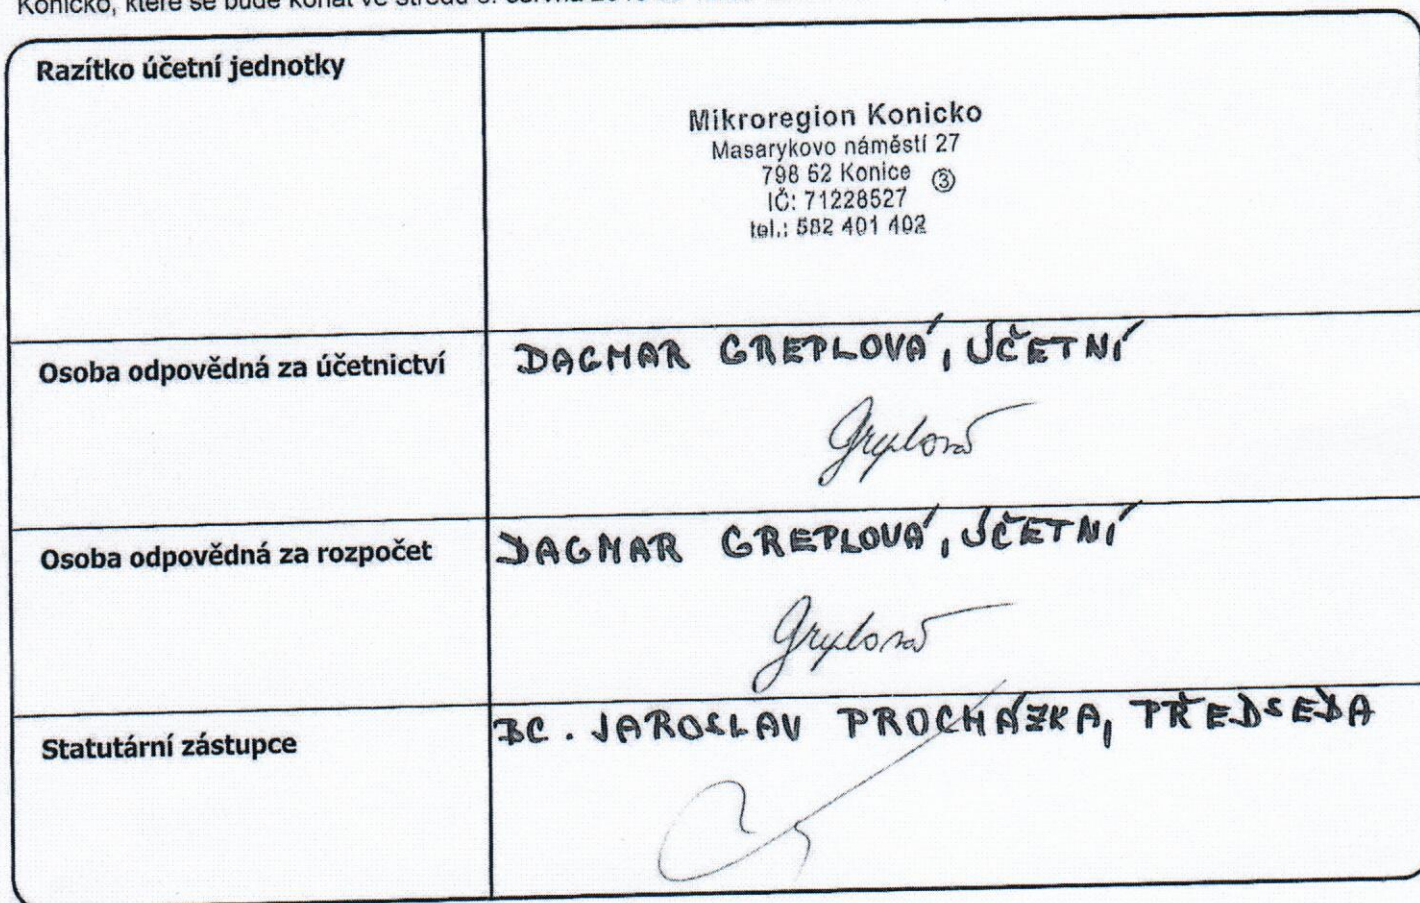 Konicko, které se bude konat ve středu
Razítko účetní jednotky
Mikroregion Konicko
Masarykovo náměstí 27
798 52 Konice ③
IČ: 71228527
tel.: 582 401 402
Osoba odpovědná za účetnictví
DAGMAR GREPLOVÁ, ÚČETNÍ
Greplová
Osoba odpovědná za rozpočet
DAGMAR GREPLOVÁ, ÚČETNÍ
Greplová
Statutární zástupce
BC. JAROSLAV PROCHÁZKA, PŘEDSEDA